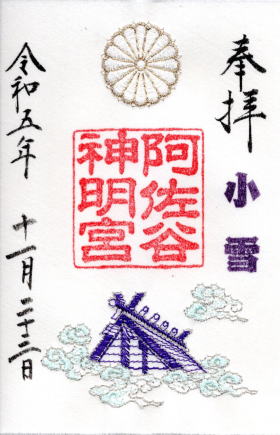 奉拝
小雪
阿佐谷
神明宮
令和五年 十一月二十二日